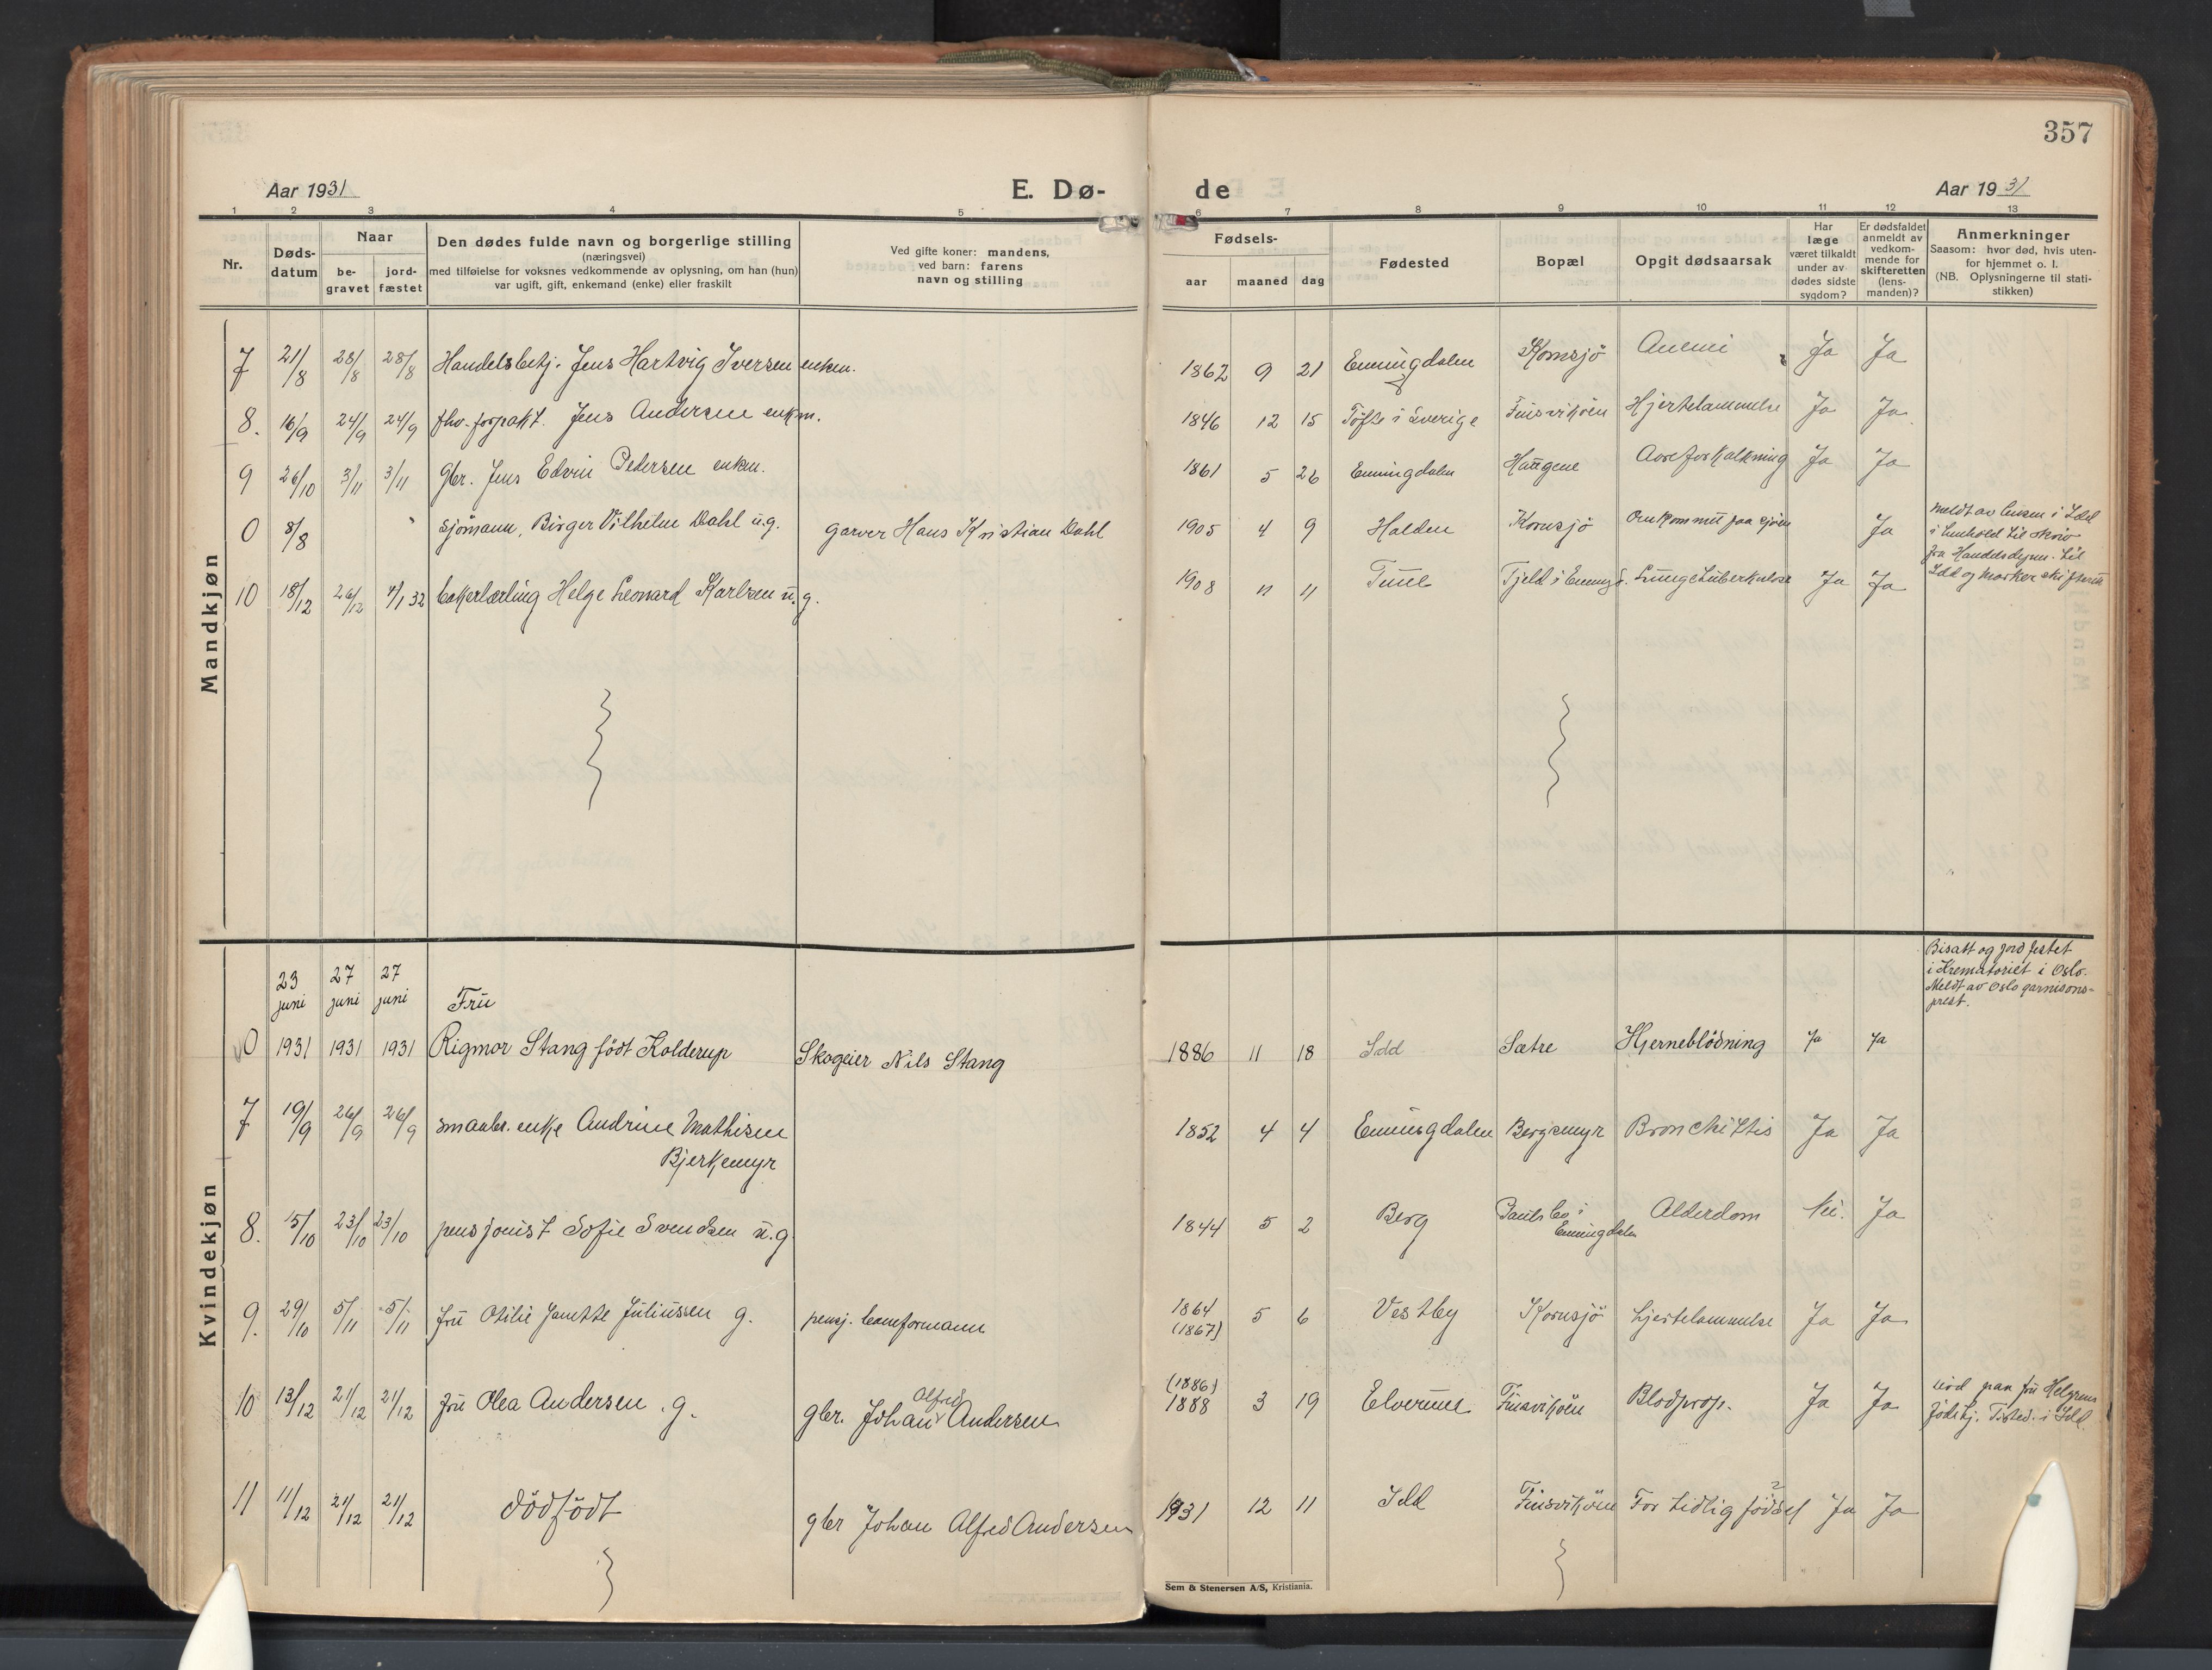 357
Aar 1931
E. Dø-
de
Aar 1931
1 2 3 4 5 6 7 8 9 10 11 12 13
Nr.
Døds-
datum
Naar
be-
gravet
jord-
fæstet
Den dødes fulde navn og borgerlige stilling
(næringsvei)
med tilføielse for voksnes vedkommende av oplysning, om han (hun)
var ugift, gift, enkemand (enke) eller fraskilt
Ved gifte koner: mandens,
ved barn: farens
navn og stilling
Fødsels-
aar maaned dag
Fødested
Bopæl
Opgit dødsaarsak
Har
læge
været tilkaldt
under av-
dødes sidste
sygdom?
Er dødsfaldet
anmeldt av
vedkom-
mende for
skifteretten
(lens-
manden)?
Anmerkninger
Saasom: hvor død, hvis uten-
for hjemmet o. l.
(NB. Oplysningerne til stati-
stikken)
Mandkjøn
7 21/8 28/8 28/8 Handelsbetj. Jens Hartvig Iversen enkm. 1862 9 21 Enningdalen Kornsjö Anemi Ja Ja
8. 16/9 24/9 24/9 fhv. forpakt. Jens Andersen enkm. 1846 12 15 Töfte i Sverige Hjertelammelse Ja Ja
9 26/10 3/11 3/11 gbr. Jens Edvin Pedersen enkm. 1861 5 26 Enningdalen Haugene Aareforkalkning Ja Ja
0 8/8 sjömann, Birger Vilhelm Dahl u.g. garver Hans Kristian Dahl 1905 4 9 Halden Kornsjö Omkommit paa sjöen Ja
meldt av lensm. i Idd
i henhold til skriv
fra Handelsdepm. til
Idd og Marker skifterett
10 18/12 26/12 4/1 32 bakerlærling Helge Leonard Karlsen u.g. 1908 11 11 Tune Tjeld i Enningd. Lungetuberkulose Ja Ja
Kvindekjøn
Bisatt og jordfestet
i Krematoriet i Oslo.
Meldt av Oslo garnisons-
prest.
23 27 27
juni juni juni Fru
0 1931 1931 1931 Rigmor Stang födt Kolderup Skogeier Nils Stang 1886 11 18 Idd Sætre Hjerneblödning Ja Ja
7 19/9 26/9 26/9 smaabr. enke Andrine Mathisen 1852 4 4 Enningdalen Bergsmyr Bronchittis Ja Ja
Bjerkemyr
8. 15/10 23/10 23/10 pensjonist Sofie Svendsen u.g. 1844 5 2 Berg Paulsbo i Alderdom Nei. Ja
Enningdalen
9. 29/10 5/11 5/11 fru Otilie Janette Juliussen g. pensj. baneformann 1864 5 6 Vestby Kornsjö hjertelammelse Ja Ja
(1867)
(1886)
10 13/12 21/12 21/12 fru Olea Andersen. g. gbr. Johan Alfred Andersen 1888 3 19 Elverum Blodprop. Ja Ja
fru Helgrens
födehj. Tisted. i Idd.
11 11/12 21/12 21/12 dödfödt gbr Johan Alfred Andersen 1931 12 11 Idd For tidlig födsel ? Ja Ja
Sem & Stenersen A/S, Kristiania.